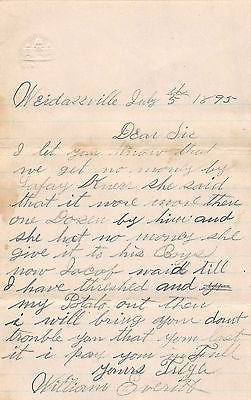 Weidassville July 5th 1895
Dear Sir
I let you know that
we get no money by
she said
that it were more then
one Dosen by him and
she hat no money she
give it to his Boys
now Jacob waid till
I have threshed and
my Potato out then
i will bring you dont
trouble you that you lost
it i pay you in full
yours
William Everitt